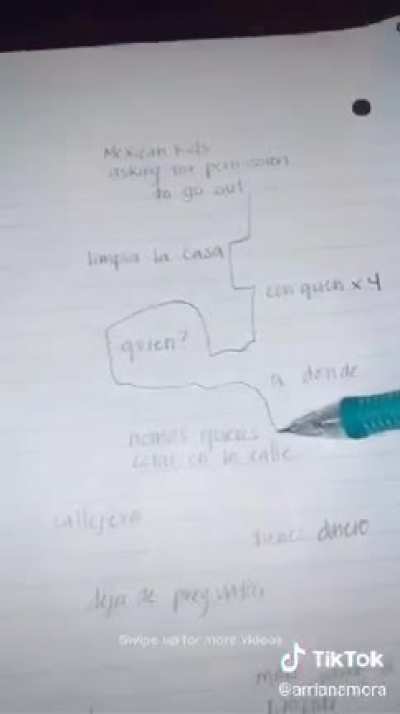 Mexican kids
asking for permission
to go out
limpia la casa
con quien x 4
quien?
a donde
nomas quieres
estar en la calle
callejera
tienes dinero
deja de preguntar
Swipe up for more videos
TikTok
@arrianamora